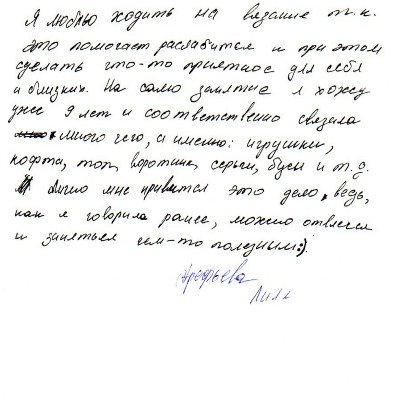 Я люблю ходить на вязание т.к.
это помогает раслабится и при этом
сделать что-то приятное для себя
и близких. На само занятие я хожу
уже 9 лет и соответственно связала
много чего, а именно: игрушки,
кофта, топ, воротник, серьги, бусы и т.д.
Лично мне нравится это дело, ведь,
как я говорила ранее, можно отвлечся
и заняться чем-то полезным:).
Арефьева
Лиля